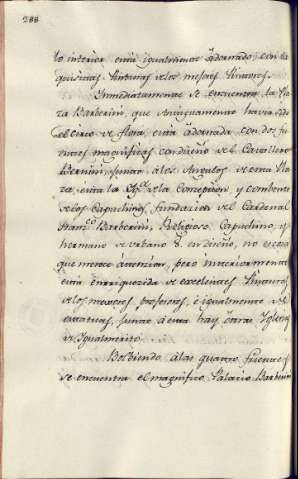 288
to interior está igualmente adornado, con ex
quisitas Pinturas de los mejores Pinzeles.
Inmediatamente se encuentra la Pla
za Barberini, que antiguamente havia sido
el circo de Flora, está adornada con dos fu
entes magnificas con diseño del Cavallero
Bernini, junto à los Angulos de esta Pla
za, está la Yg.ª de la Concepcion, y combento
de los Capuchinos, fundacion del Cardenal
Fran.co Barberini, Religioso Capuchino, y
hermano de Urbano 8. su diseño, no es cosa
que merece atencion, pero interiormente
está enrriquezida de excelentes Pinturas
de los mejores profesores, è igualmente de
estatuas, junto à esta hay otras Iglesias
de Igual merito.
Bolbiendo à las quatro fuentes
se encuentra el magnifico Palacio Barberin